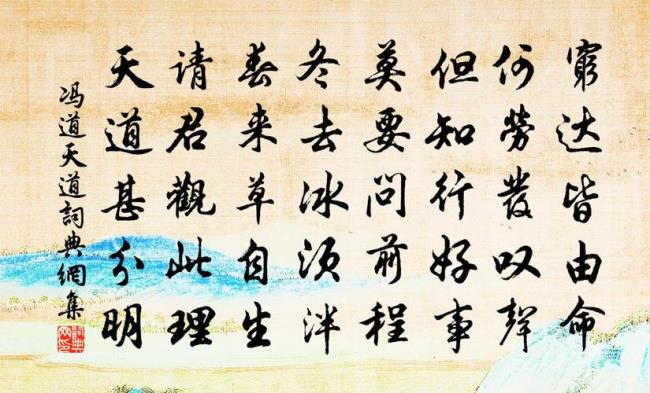 窮达皆由命
何勞發叹聲
但知行好事
莫要問前程
冬去冰须泮
春来草自生
请君觀此理
天道甚分明
冯道天道詞典網集